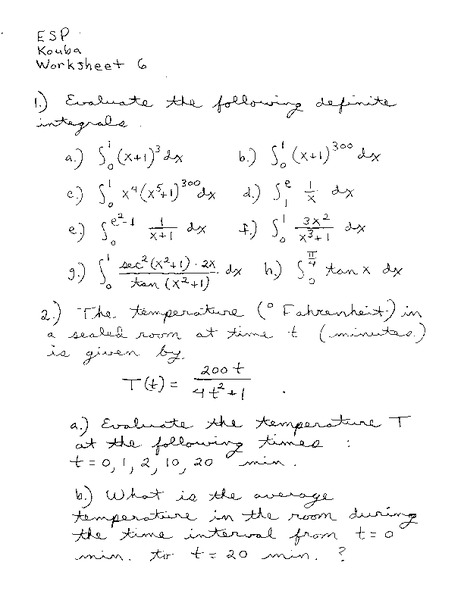 ESP
Kouba
Worksheet 6
1.) Evaluate the following definite
integrals.
a.) ∫₀¹ (x+1)³ dx b.) ∫₀¹ (x+1)³⁰⁰ dx
c.) ∫₀¹ x⁴(x⁵+1)³⁰⁰ dx d.) ∫₁ᵉ 1/x dx
e.) ∫₀^(e²-1) 1/(x+1) dx f.) ∫₀¹ 3x²/(x³+1) dx
g.) ∫₀¹ sec²(x²+1)·2x/tan(x²+1) dx h.) ∫₀^(π/4) tan x dx
2.) The temperature (° Fahrenheit) in
a sealed room at time t (minutes)
is given by
T(t) = 200t/(4t²+1) .
a.) Evaluate the temperature T
at the following times :
t = 0, 1, 2, 10, 20 min.
b.) What is the average
temperature in the room during
the time interval from t=0
min. to t=20 min. ?